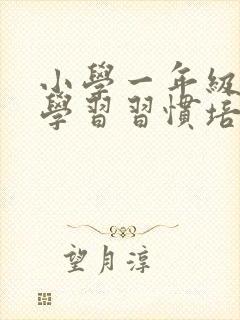 小學一年級
學習習慣培
望月淳